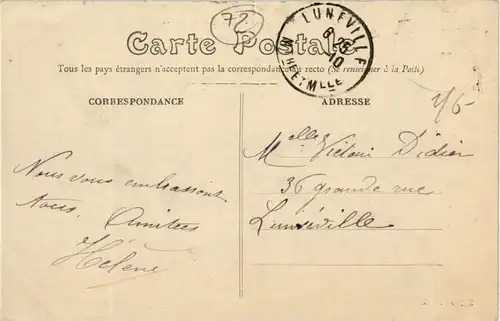 72
LUNÉVILLE
8 25
10
MRTHE ET MLLE
Carte Postale
Tous les pays étrangers n'acceptent pas la correspondance au recto (Se renseigner à la Poste)
CORRESPONDANCE
ADRESSE
Nous vous embrassons
tous. Amitées
Hélène
Melle Didier
36 grande rue
Lunéville